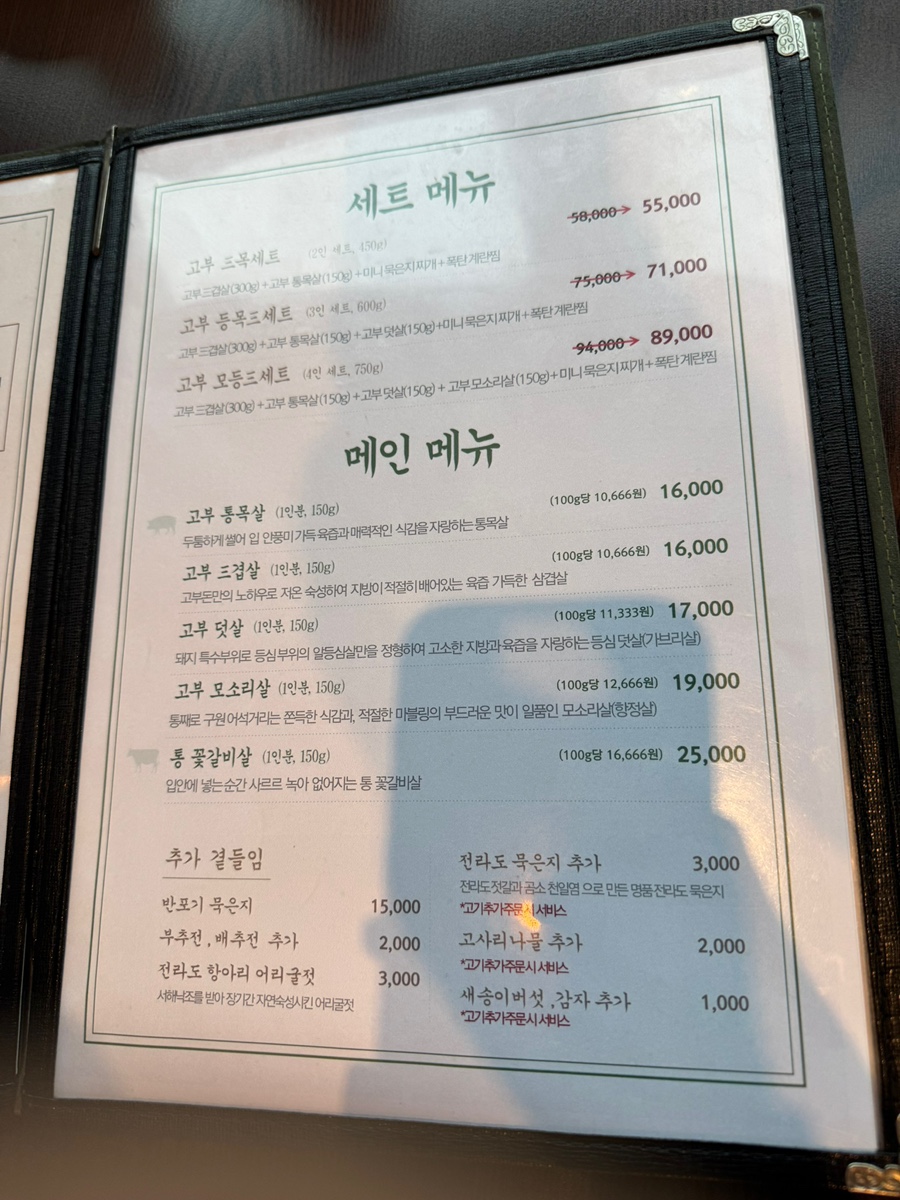 세트 메뉴
58,000→ 55,000
고부 삼목세트 (2인 세트, 450g)
고부 삼겹살(300g) + 고부 통목살(150g) + 미니 묵은지 찌개 + 폭탄 계란찜
75,000→ 71,000
고부 등목삼세트 (3인 세트, 600g)
고부 삼겹살(300g) + 고부 통목살(150g) + 고부 덧살(150g)+미니 묵은지 찌개 + 폭탄 계란찜
94,000→ 89,000
고부 모등삼세트 (4인 세트, 750g)
고부 삼겹살(300g) + 고부 통목살(150g) + 고부 덧살(150g) + 고부 모소리살(150g)+ 미니 묵은지 찌개 + 폭탄 계란찜
메인 메뉴
고부 통목살 (1인분, 150g) (100g당 10,666원) 16,000
두툼하게 썰어 입 안풍미 가득 육즙과 매력적인 식감을 자랑하는 통목살
고부 삼겹살 (1인분, 150g) (100g당 10,666원) 16,000
고부돈만의 노하우로 저온 숙성하여 지방이 적절히 배어있는 육즙 가득한 삼겹살
고부 덧살 (1인분, 150g) (100g당 11,333원) 17,000
돼지 특수부위로 등심 부위의 알등심살만을 정형하여 고소한 지방과 육즙을 자랑하는 등심 덧살(가브리살)
고부 모소리살 (1인분, 150g) (100g당 12,666원) 19,000
통째로 구워 어석거리는 쫀득한 식감과, 적절한 마블링의 부드러운 맛이 일품인 모소리살(항정살)
통 꽃갈비살 (1인분, 150g) (100g당 16,666원) 25,000
입안에 넣는 순간 사르르 녹아 없어지는 통 꽃갈비살
추가 곁들임
반포기 묵은지 15,000
부추전 , 배추전 추가 2,000
전라도 항아리 어리굴젓 3,000
서해낙조를 받아 장기간 자연숙성시킨 어리굴젓
전라도 묵은지 추가 3,000
전라도 젓갈과 곰소 천일염 으로 만든 명품 전라도 묵은지
*고기 추가 주문시 서비스
고사리나물 추가 2,000
*고기 추가 주문시 서비스
새송이버섯 , 감자 추가 1,000
*고기 추가 주문시 서비스